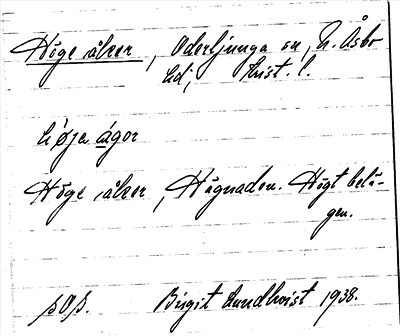 Höge åker, Oderljunga sn, N. Åsbo
hd, Krist. l.
høja ágor
Höge åker, Hägnaden. Högt belä-
gen.
Birgit Lundkvist 1938.